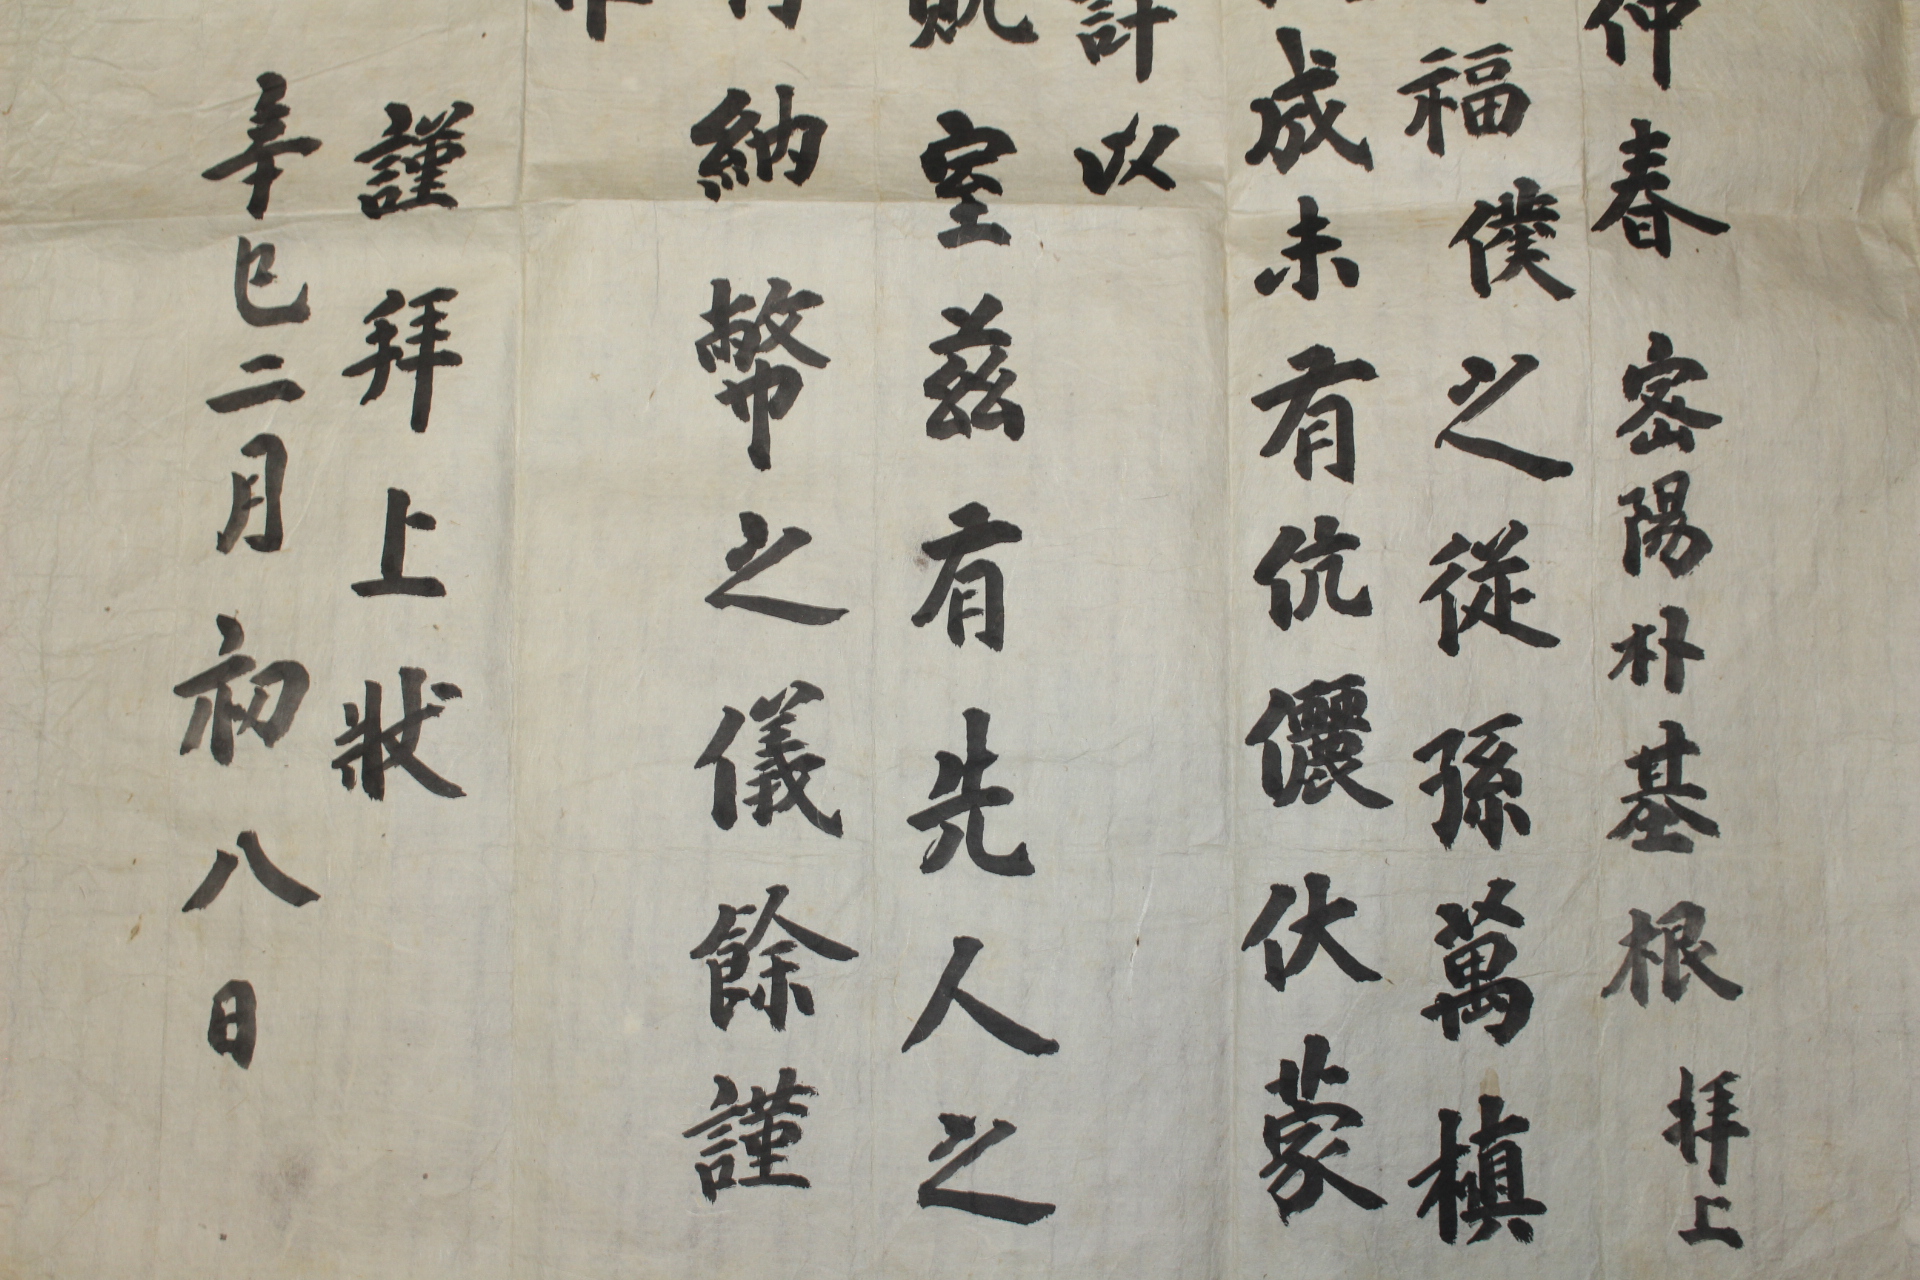 仲春 密陽朴基根 拜上
福 僕之從孫萬槙
成未有伉儷伏蒙
計 以
貺室玆有先人之
納幣之儀餘謹
謹拜上狀
辛巳二月初八日